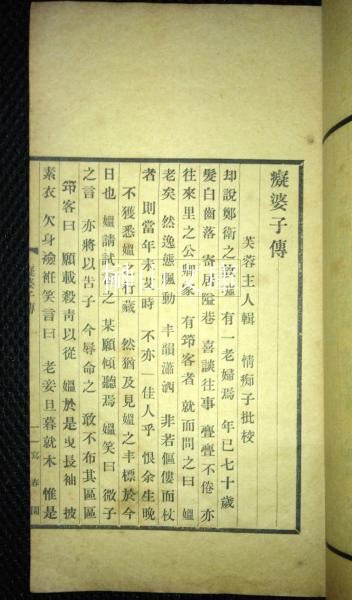 癡婆子傳
芙蓉主人輯 情痴子批校
却說鄭衛之故墟 有一老婦焉 年已七十歲
髮白齒落 寄居隘巷 喜談往事 亹亹不倦 亦
往來里之公卿家 有筇客者 就而問之曰 媼
老矣 然逸態飄動 丰韻瀟洒 非若傴僂而杖
者 則當年未艾時 不亦一佳人乎 恨余生晚
不獲悉媼之行藏 然猶及見媼之丰標於今
日也 媼請試言之 某願傾聽焉 媼笑曰 微子
之言 亦將以告子 今辱命之 敢不布其區區
筇客曰 願載殺青以從 媼於是曳長袖 披
素衣 欠身斂袵笑言曰 老妾旦暮就木 惟是
癡婆子傳
一 寫春園